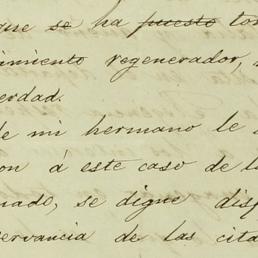 que se ha puesto to
imiento regenerador,
erdad.
de mi hermano le
on á este caso de l
nado, se digne dis
ervancia de las cita